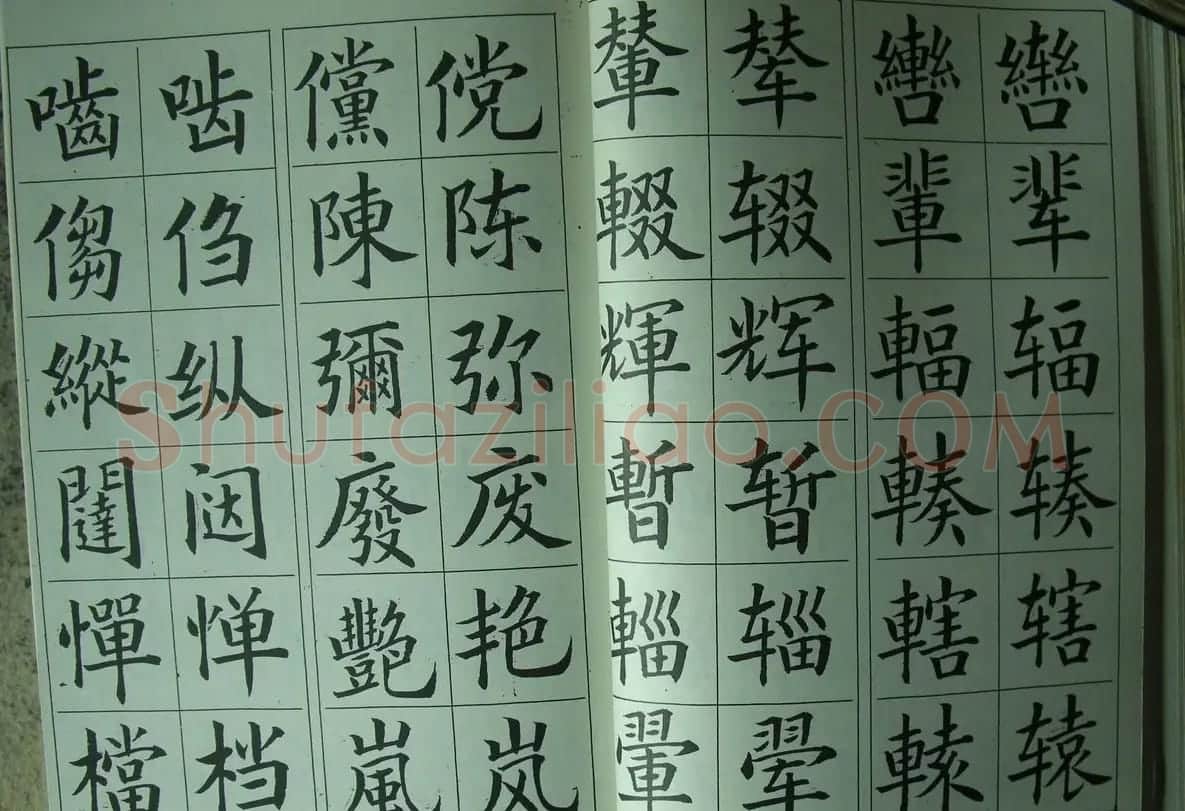 嚙 啮 儻 傥 輦 辇 轡 辔
㑳 㑇 陳 陈 輟 辍 輩 辈
縱 纵 彌 弥 輝 辉 輻 辐
Shufaziliao.COM
闥 闼 廢 废 暫 暂 輳 辏
憚 惮 艷 艳 輜 辎 轄 辖
檔 档 嵐 岚 翬 翚 轅 辕